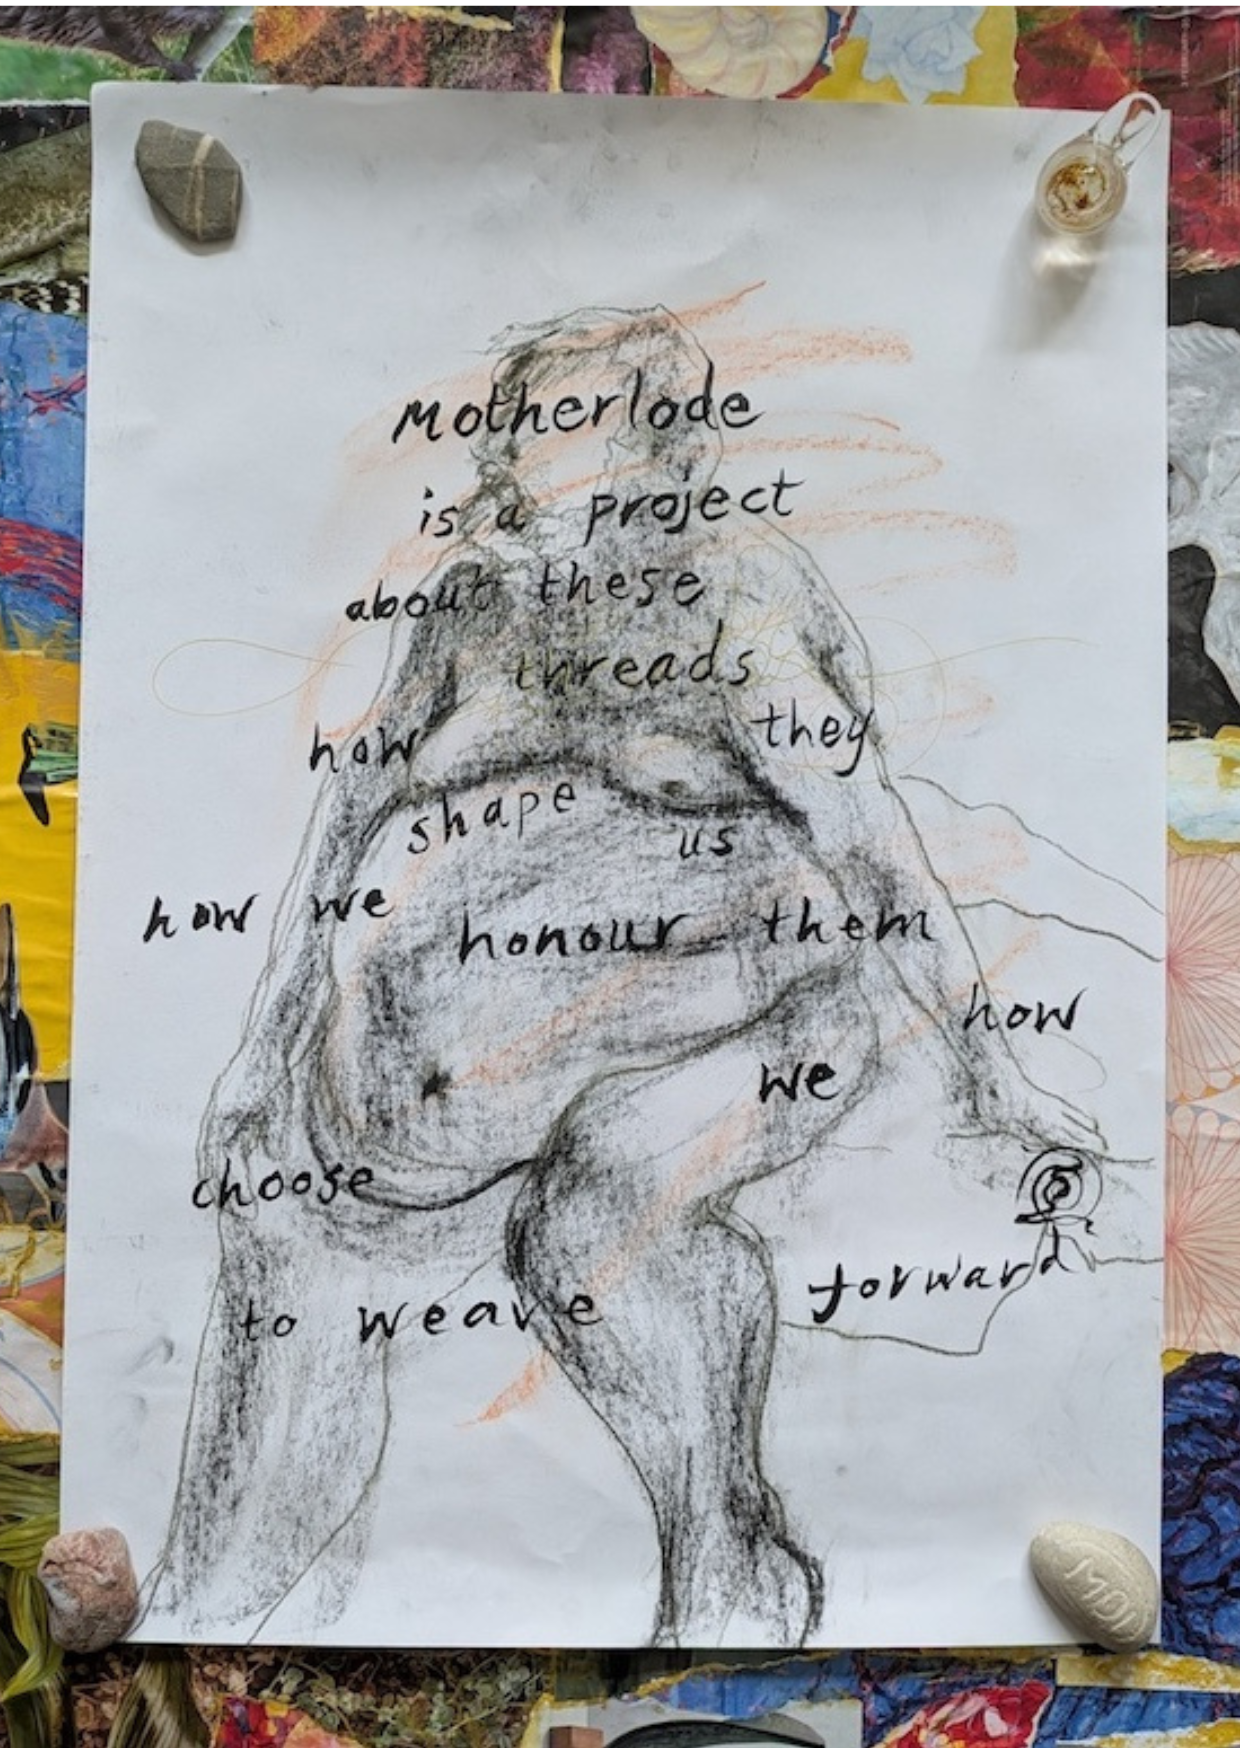 Motherlode
is a project
about these
threads
how they
shape us
how we honour them
how
we
choose
to weave forward